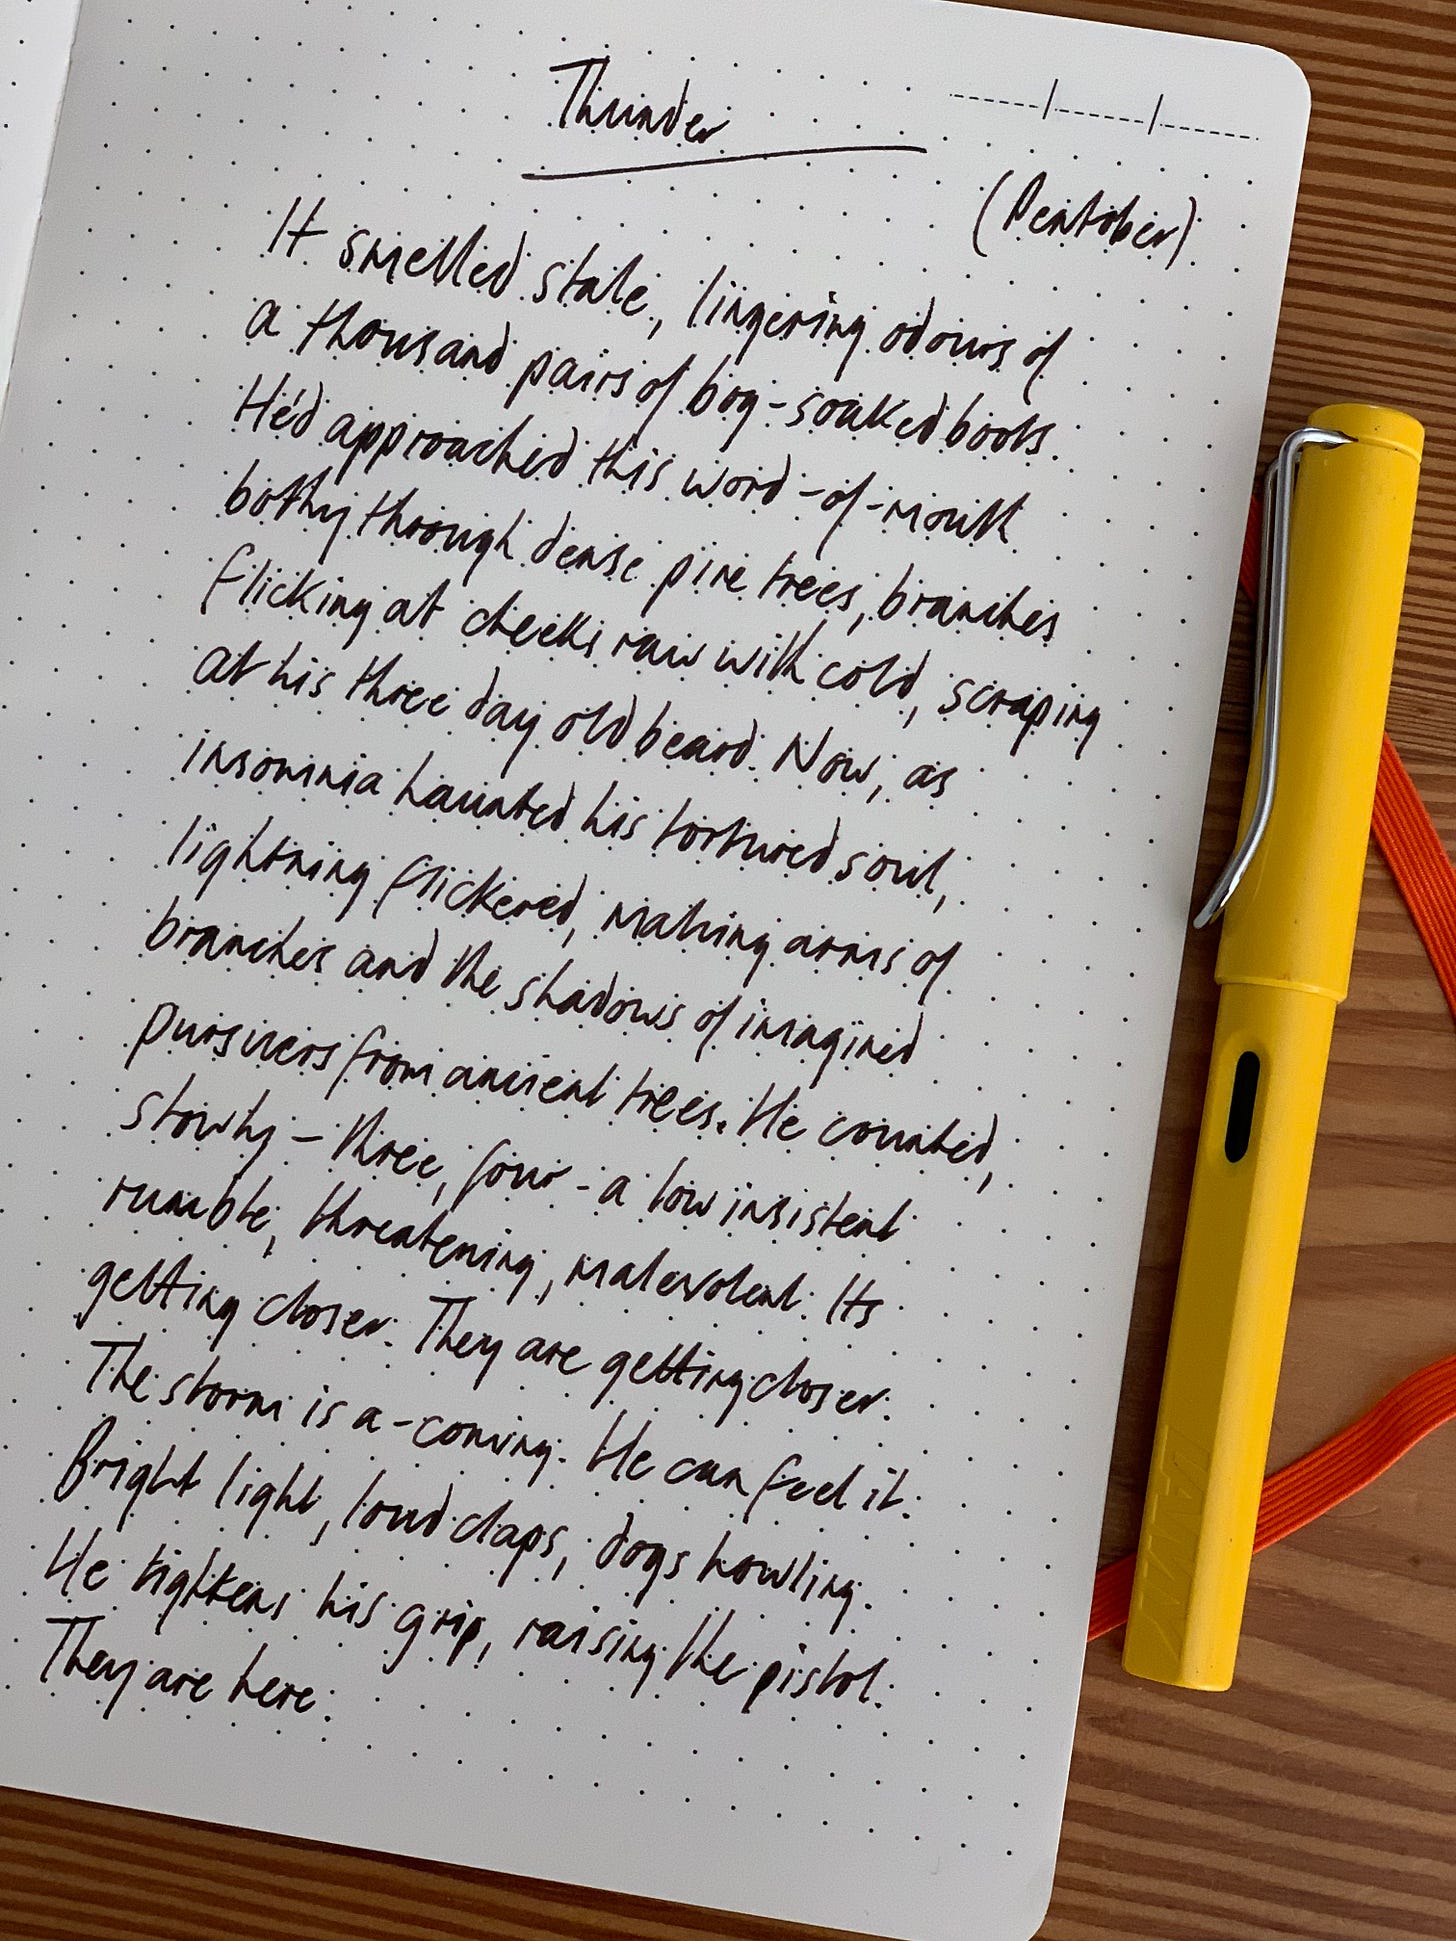 Thunder
(Pentober)
It smelled stale, lingering odours of
a thousand pairs of bog-soaked boots.
He'd approached this word-of-mouth
bothy through dense pine trees, branches
flicking at cheeks raw with cold, scraping
at his three day old beard. Now, as
insomnia haunted his tortured soul,
lightning flickered, making arms of
branches and the shadows of imagined
pursuers from ancient trees. He counted,
slowly – three, four – a low insistent
rumble, threatening, malevolent. Its
getting closer. They are getting closer.
The storm is a-coming. He can feel it.
Bright light, loud claps, dogs howling.
He tightens his grip, raising the pistol.
They are here.
LAMY